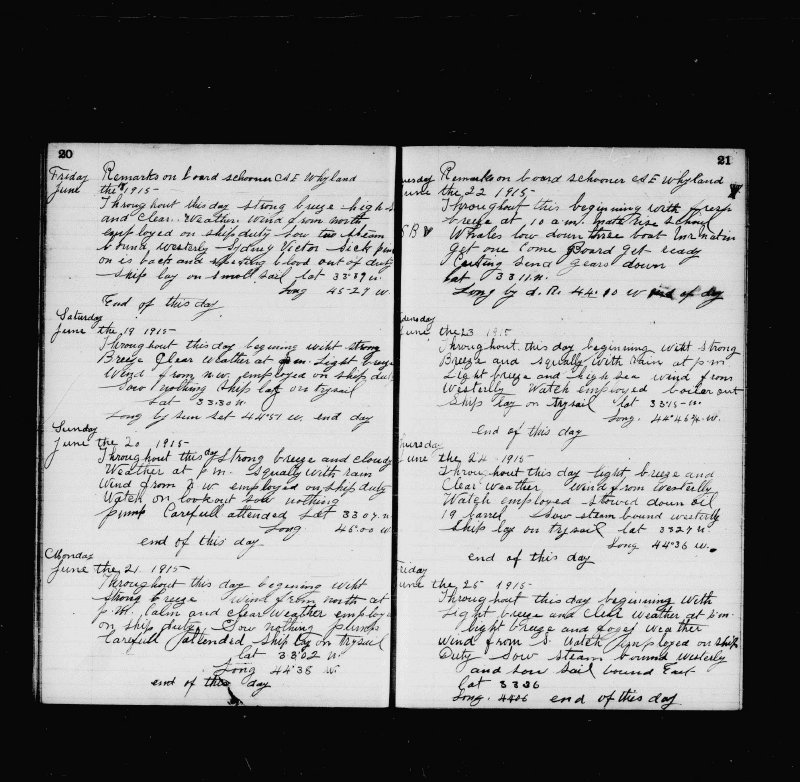 20
Friday Remarks on board schooner A E Whyland
June the 1915
Throughout this day strong breeze high
and clear. Weather Wind from north
employed on ship duty Sow two steam
bound westerly Sydney Victor sick
on is back and blood out of duty
Ship lay on small sail lat 33-39 n.
Long 45-27 w.
End of this day.
Saturday
June the 19 1915
Throughout this day begening wiht strong
Breeze Clear Weather at pm. Light breeze
Wind from n.w. employed on ship duty
Sow nothing Ship lay on trysail
Lat 33.30 n.
Long by sun set 44°51 w. end day
Sunday
June the 20 1915
Throughout this day strong breeze and cloudy
Weather at p.m. Squaly with rain
Wind from n.w employed on ship duty
Watch on lookout sow nothing
pump Carefull attended Lat 33.07 n
Long 45:00 w.
end of this day
Monday
June the 21 1915
Throughout this day begening wiht
strong breeze Wind from north at
p.m. Calm and clear Weather employ
on ship duty Sow nothing pumps
Carefull attended Ship lay on trysail
lat 33°02 n.
Long 44°38 w.
end of this day
21
uesday Remarks on board schooner A E Whyland
June the 22 1915
Throughout this beginning with fresh
breeze at 10 a.m. mate rise school
SB Whales low down three boat
get one Come Board get ready
Cutting gears down
Lat 33 11 n.
Long by d. R. 44.10 w end of day
dnesday
June the 23 1915
Throughout this day beginning Wiht Strong
Breeze and squally with rain at p.m
Light breeze and high sea wind from
Westerlly Watch employed boiler out
Ship lay on trysail lat 33°15 n.
Long. 44°45 w.
end of this day
hursday
June the 24 1915
Throughout this day light breeze and
Clear Weather Wind from westerlly
Watch employed stowid down oil
19 barrel Sow steam bound westerlly
Ship lay on trysail Lat 33 27 n
Long 44°36 w.
end of this day
riday
une the 25 1915
Throughout this day beginning With
Light breeze and Clear Weather at p.m.
light breeze and Weather
Wind from S. Watch employed on ship
Duty Sow steam bound westerly
and sow sail bound East
Lat 33 26
Long. end of this day